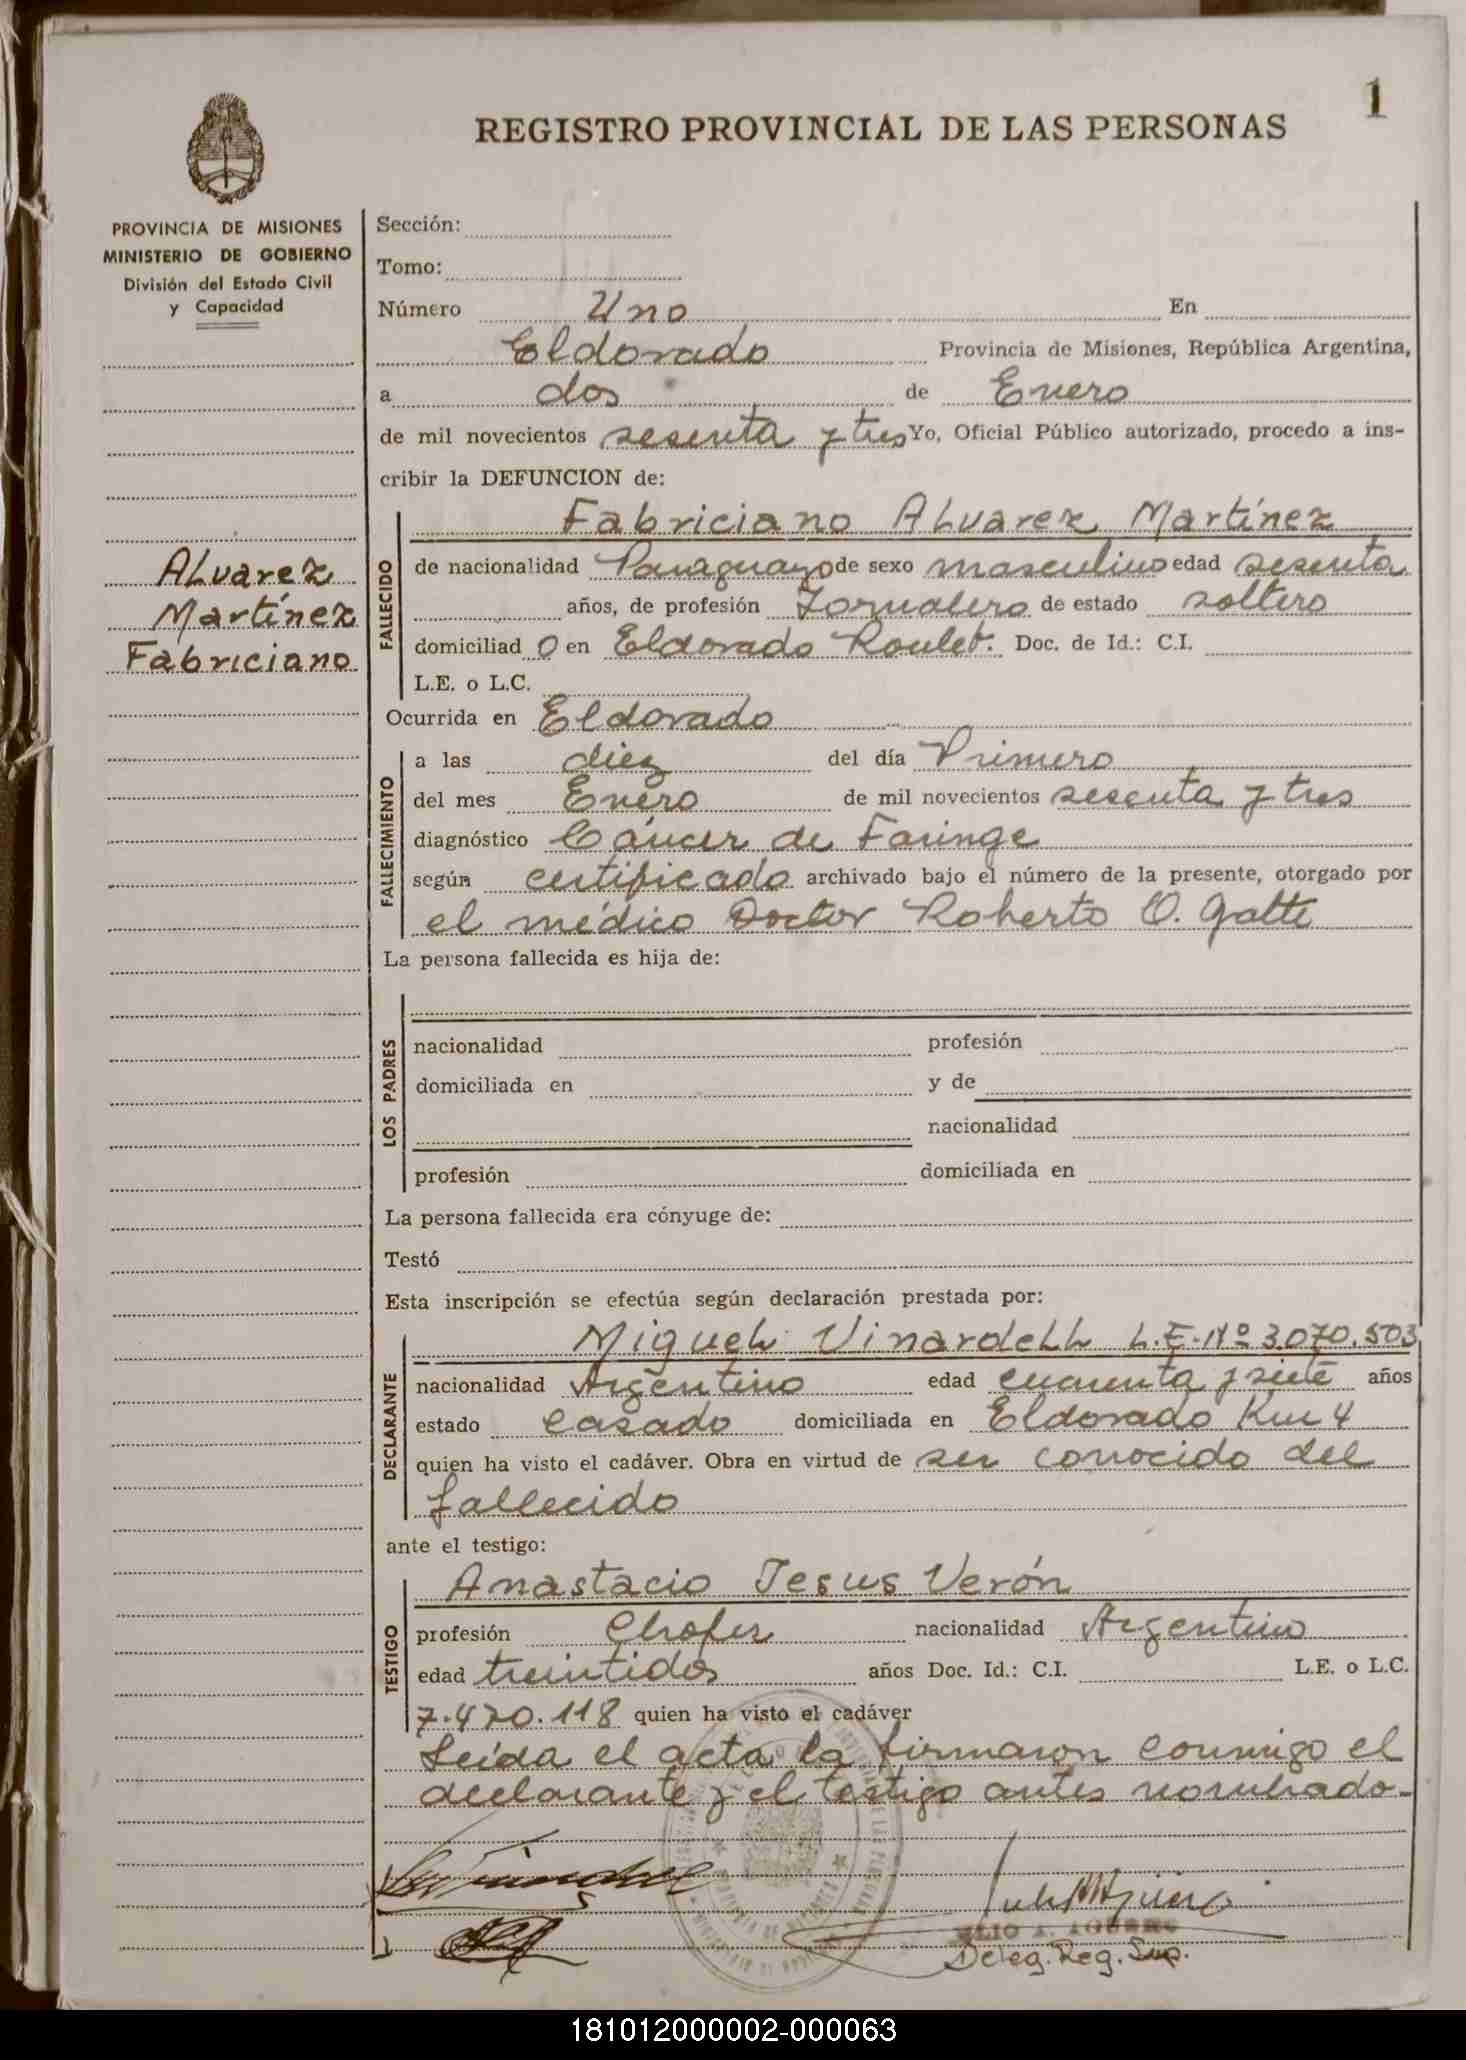 1
REGISTRO PROVINCIAL DE LAS PERSONAS
PROVINCIA DE MISIONES
MINISTERIO DE GOBIERNO
División del Estado Civil
y Capacidad
Alvarez
Martínez
Fabriciano
Sección:
Tomo:
Número Uno En
Eldorado Provincia de Misiones, República Argentina,
a dos de Enero
de mil novecientos sesenta y tres Yo, Oficial Público autorizado, procedo a ins-
cribir la DEFUNCION de:
FALLECIDO
Fabriciano Alvarez Martínez
de nacionalidad Paraguayo de sexo masculino edad sesenta
años, de profesión Jornalero de estado soltero
domiciliad o en Eldorado Roulet. Doc. de Id.: C.I.
L.E. o L.C.
Ocurrida en Eldorado
FALLECIMIENTO
a las diez del día Primero
del mes Enero de mil novecientos sesenta y tres
diagnóstico Cáncer de Faringe
según certificado archivado bajo el número de la presente, otorgado por
el médico Doctor Roberto O. Gatti
La persona fallecida es hija de:
LOS PADRES
nacionalidad profesión
domiciliada en y de
nacionalidad
profesión domiciliada en
La persona fallecida era cónyuge de:
Testó
Esta inscripción se efectúa según declaración prestada por:
DECLARANTE
Miguel Vinardell L.E. Nº 3.070.503
nacionalidad Argentino edad cuarenta y siete años
estado casado domiciliada en Eldorado Km 4
quien ha visto el cadáver. Obra en virtud de ser conocido del
fallecido
ante el testigo:
TESTIGO
Anastacio Jesus Verón
profesión Chofer nacionalidad Argentino
edad treintidos años Doc. Id.: C.I. L.E. o L.C.
7.470.118 quien ha visto el cadáver
Leída el acta la firmaron conmigo el
declarante y el testigo antes nombrado-
Deleg. Reg. Sup.
181012000002-000063